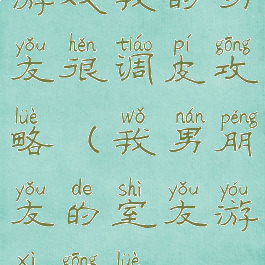 yǒu hěn tiáo pí gōng
友很调皮攻
lüè wǒ nán péng
略（我男朋
yǒu de shì yǒu yóu
友的室友游
xì gōng lüè